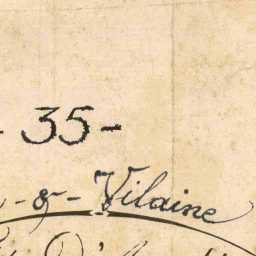 - 35 -
- & - Vilaine